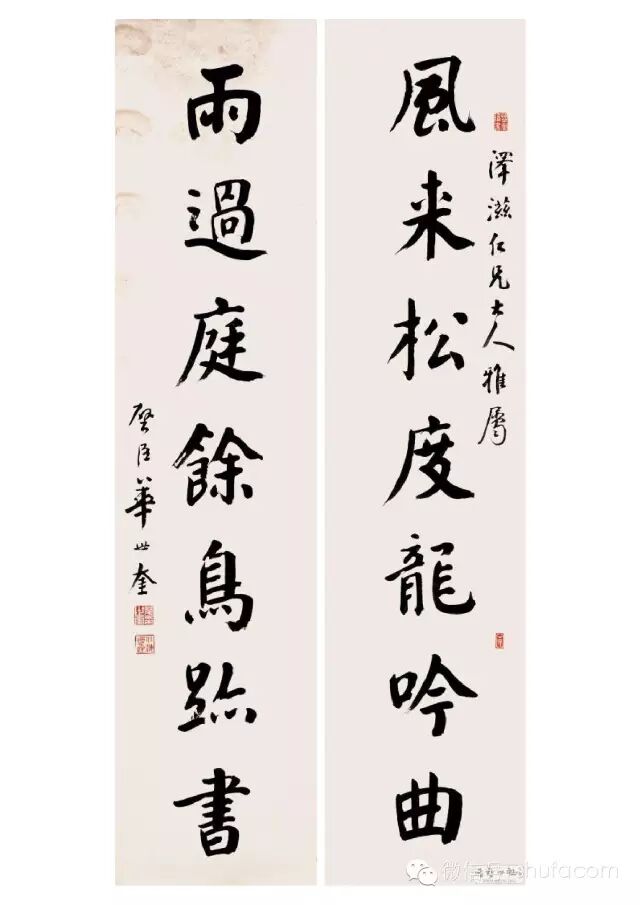 風来松度龍吟曲
澤滋仁兄大人雅屬
雨過庭餘鳥跡書
璧臣華世奎
微信号:shufacom